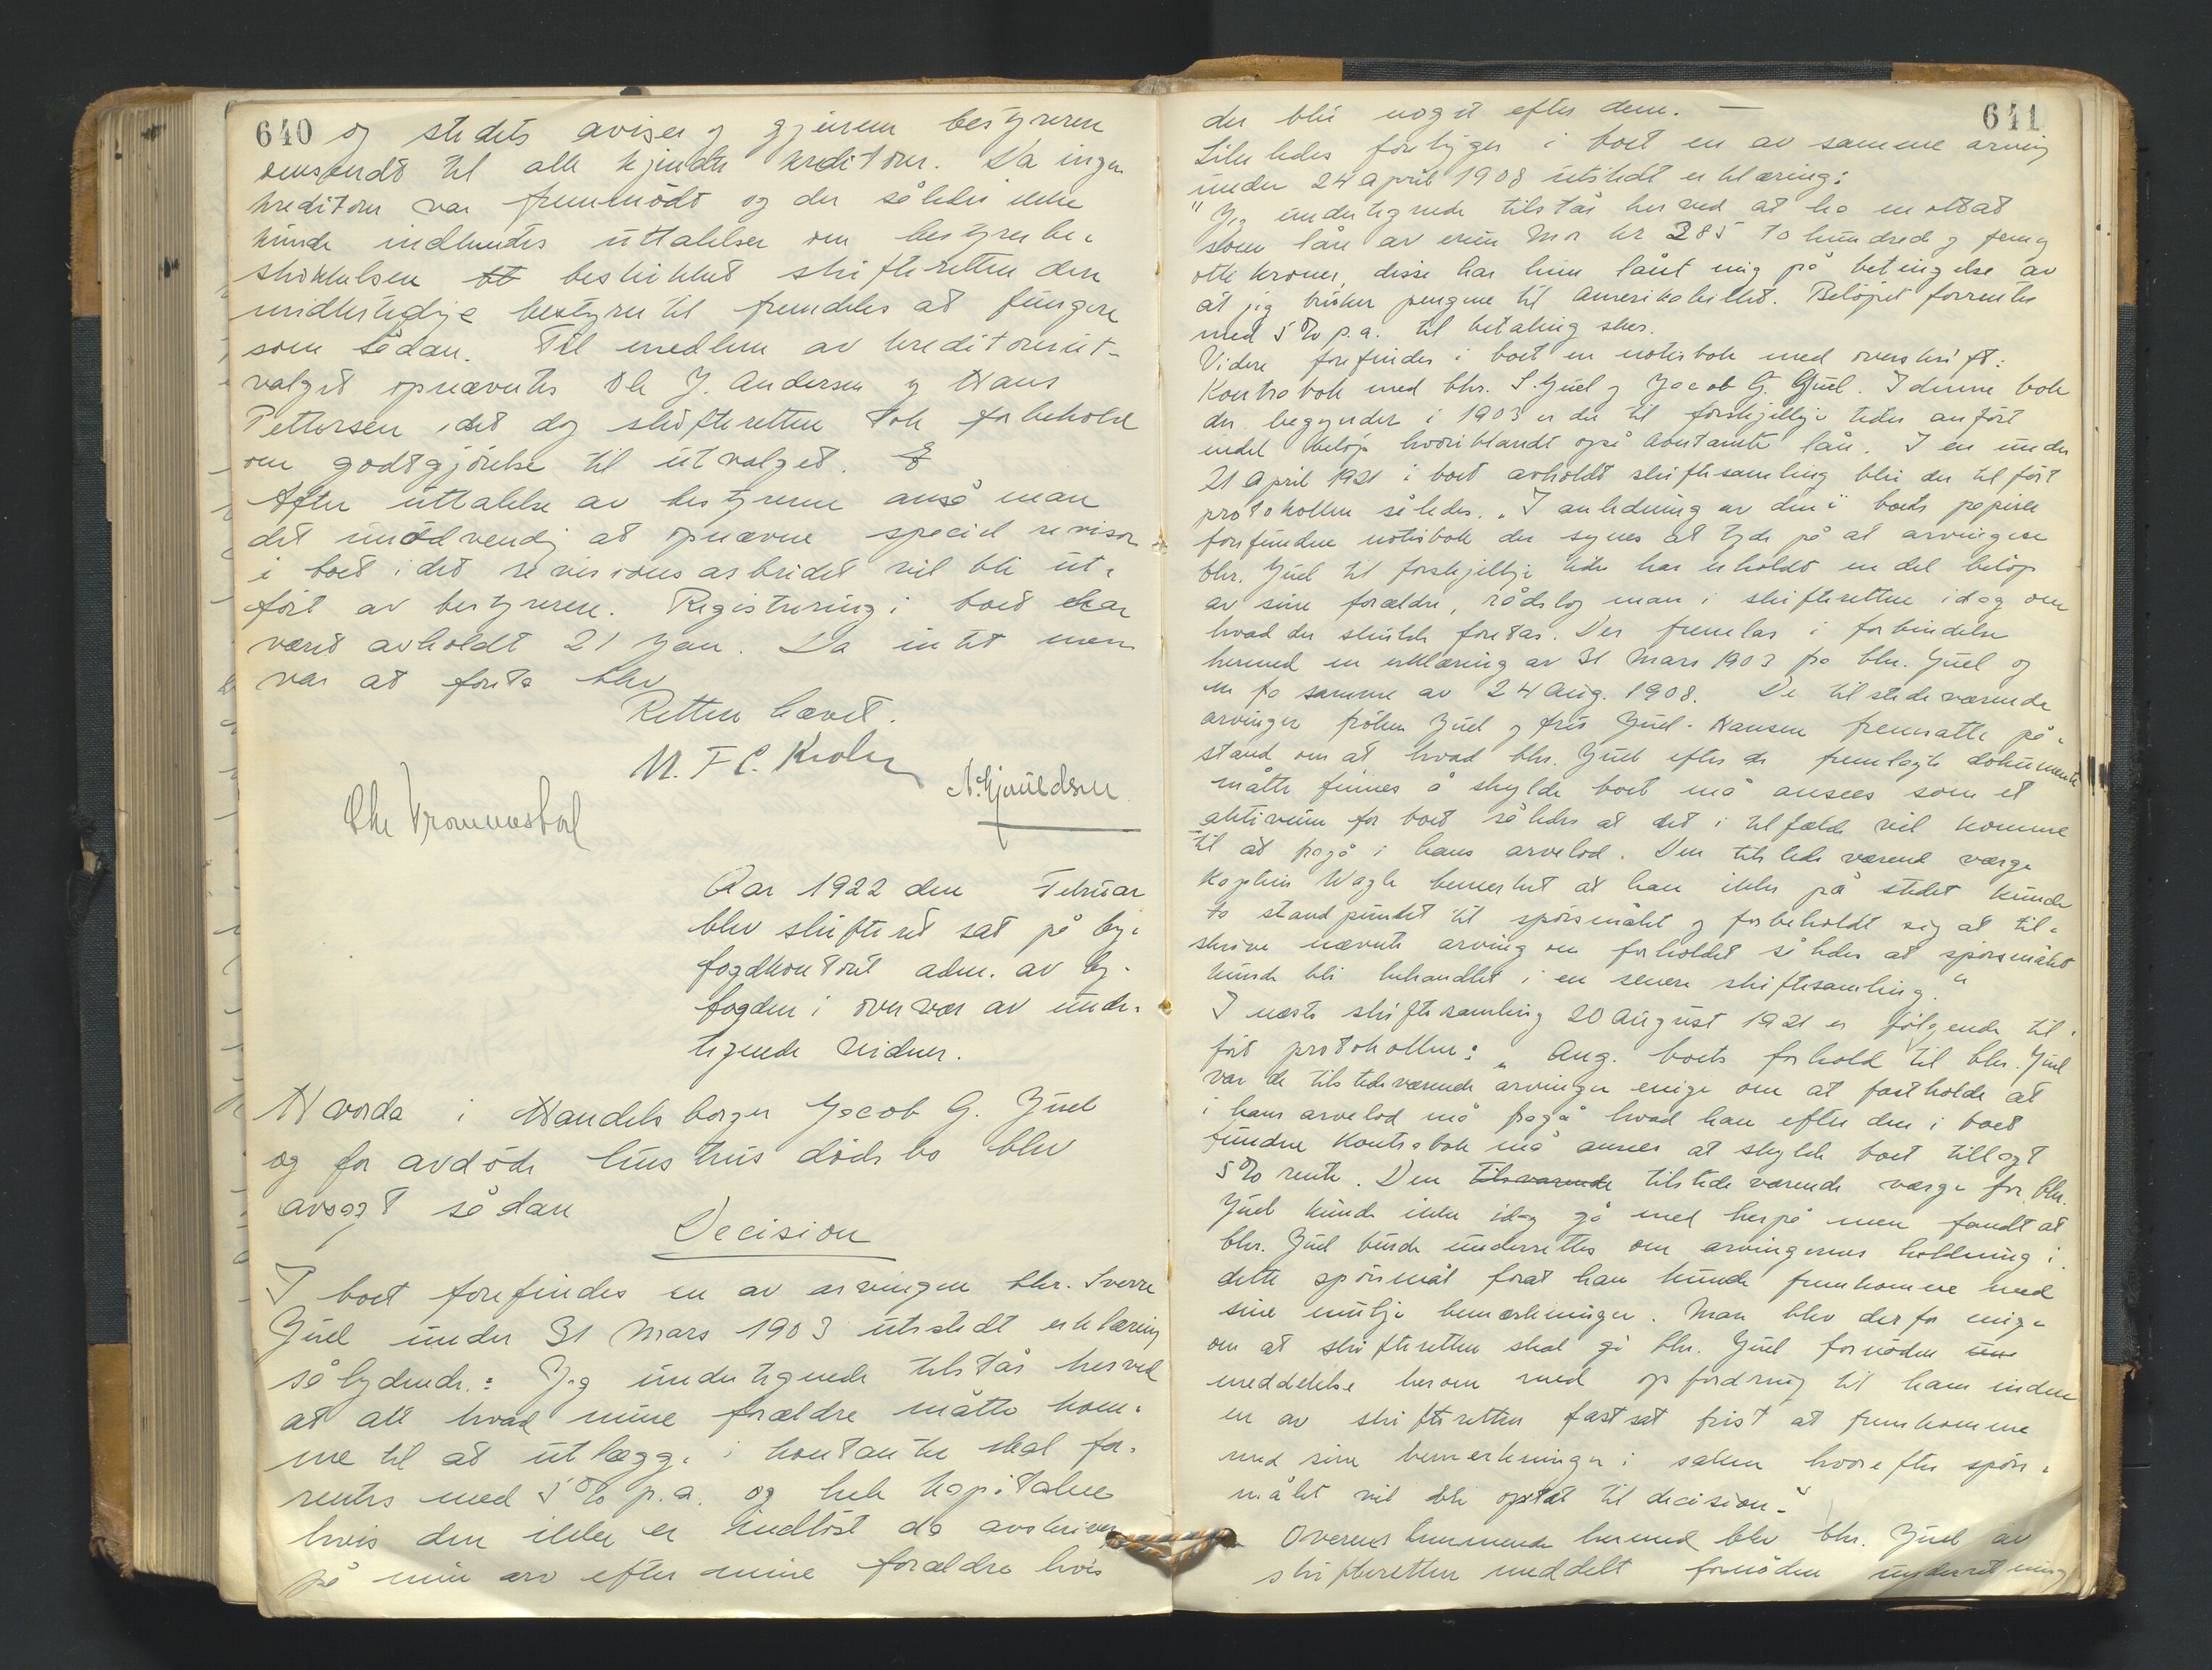 640 og stedets aviser og gjennem bestyreren
omsendt til alle kjendte kreditorer. Da ingen
kreditorer var fremmødt og der således ikke
kunde indhentes uttalelser om bestyrerbe-
skikkelsen beskikket skifteretten den
midlertidige bestyrer til fremdeles at fungere
som sådan. Til medlem av kreditorut-
valget opnævntes Ole J. Andersen og Hans
Pettersen, idet dog skifteretten tok forbehold
om godtgjörelse til utvalget.
Efter uttalelse av bestyreren anså man
det unödvendig at opnævne speciel revisor
i boet idet revisionsarbeidet vil bli ut-
fört av bestyreren. Registrering i boet har
været avholdt 21 Jan. Da intet mere
var at foreta blev
Retten hævet.
M. F. C. Krohn
Aar 1922 den Februar
blev skifteret sat på by-
fogdkontoret adm. av by-
fogden i overvær av under-
tegnede vidner.
Hvorda i Handelsborger Jacob G. Juel
og for avdöde hustrus dödsbo blev
avsagt sådan
Decision
I boet forefindes en av arvingen hr. Sverre
Juel under 31 Mars 1903 utstedt erklæring
sålydende.: Jeg undertegnede tilstår herved
at alt hvad mine forældre måtte kom-
me til at utlægge i kontanter skal for-
rentes med 5 % p.a. og hele kapitalen
hvis den ikke er indlöst da avskrives
på min arv efter mine forældre hvis
641
der blir noget efter dem. —
Likeledes foreligger i boet en av samme arving
under 24 april 1908 utstedt erklæring:
"Jeg undertegnede tilstår herved at ha mottat
som lån av min Mor kr 285 to hundred og femog
otti kroner, disse har hun lånt mig på betingelse av
at jeg bruker pengene til Amerikabillet. Belöpet forrentes
med 5 % p.a. til betaling sker.
Videre forefindes i boet en notisbok med overskrift:
Kontrabok med hr. S. Juel og Jacob G. Juel. I denne bok
der begynder i 1903 er der til forskjellige tider anfört
endel belöp hvoriblandt også lån. I en under
21 april 1921 i boet avholdt skiftesamling blir der tilfört
protokollen således. "I anledning av den i boets papirer
forefundne notisbok der synes at tyde på at arvingen
hr. Juel til forskjellige tider har erholdt en del belöp
av sine forældre, rådslog man i skifteretten idag om
hvad der skulde foretas. Der fremlas i forbindelse
hermed en erklæring av 31 Mars 1903 fra hr. Juel og
en fra samme av 24 Aug. 1908. De tilstedeværende
arvinger fröken Juel og fru Juel-Hansen fremsatte på-
stand om at hvad hr. Juel efter de fremlagte dokumenter
måtte finnes å skylde boet må ansees som et
aktivum for boet således at det i tilfælde vil komme
til at fragå i hans arvelod. Den tilstedeværende værge
Kaptein Wagle bemerket at han ikke på stedet kunde
ta standpunkt til spörsmålet og forbeholdt sig at til-
skrive nævnte arving om forholdet således at spörsmålet
kunde bli behandlet i en senere skiftesamling."
I næste skiftesamling 20 August 1921 er fölgende til-
fört protokollen: "Ang. boets forhold til hr. Juel
var de tilstedeværende arvinger enige om at fastholde at
i hans arvelod må fragå hvad han efter den i boet
fundne Kontrabok må ansees at skylde boet tillagt
5 % rente. Den tilsvarende tilstedeværende værge for hr.
Juel kunde ikke idag gå med herpå men fandt at
hr. Juel burde underrettes om arvingernes holdning i
dette spörsmål forat han kunde fremkomme med
sine mulige bemerkninger. Man blev derfor enige
om at skifteretten skal gi hr. Juel fornöden
meddelelse herom med opfordring til ham inden
en av skifteretten fastsat frist at fremkomme
med sine bemerkninger i saken hvorefter spörs-
målet vil bli optat til decision."
Overensstemmende hermed blev hr. Juel av
skifteretten meddelt fornöden underretning